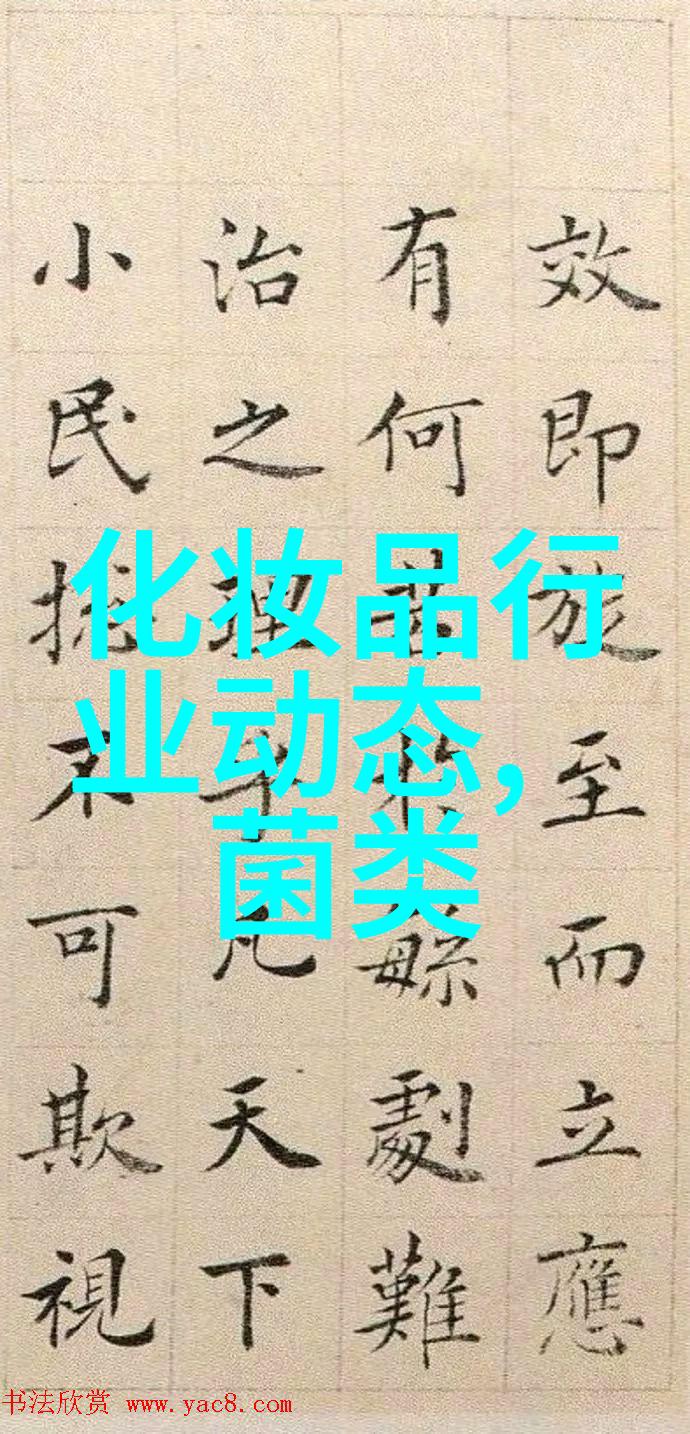 化妆品行
业动态,
菌类
效即旋至而立應
有何繁劇難
治之理乎凡天下
小民捴不可欺視
书法欣赏 www.yac8.com